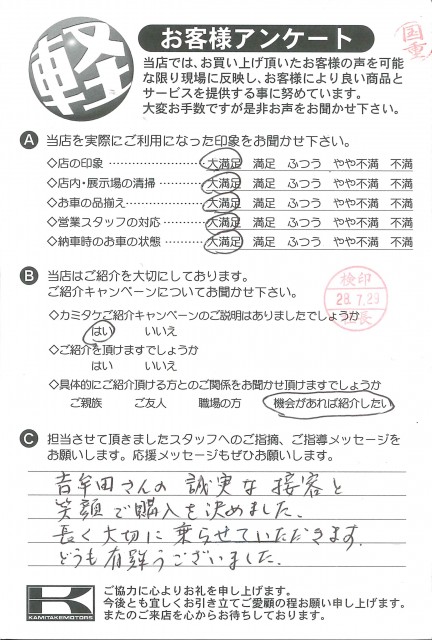 軽
お客様アンケート
当店では、お買い上げ頂いたお客様の声を可能
な限り現場に反映し、お客様により良い商品と
サービスを提供する事に努めています。
大変お手数ですが是非お声をお聞かせ下さい。
A 当店を実際にご利用になった印象をお聞かせ下さい。
◇店の印象 ………………… 大満足 満足 ふつう やや不満 不満
◇店内・展示場の清掃 ……… 大満足 満足 ふつう やや不満 不満
◇お車の品揃え ……………… 大満足 満足 ふつう やや不満 不満
◇営業スタッフの対応 ……… 大満足 満足 ふつう やや不満 不満
◇納車時のお車の状態 ……… 大満足 満足 ふつう やや不満 不満
B 当店はご紹介を大切にしております。
ご紹介キャンペーンについてお聞かせ下さい。
検印
28.7.23
◇カミタケご紹介キャンペーンのご説明はありましたでしょうか
はい いいえ
◇ご紹介を頂けますでしょうか
はい いいえ
◇具体的にご紹介頂ける方とのご関係をお聞かせ頂けますでしょうか
ご親族 ご友人 職場の方 機会があれば紹介したい
C 担当させて頂きましたスタッフへのご指摘、ご指導メッセージを
お願いします。応援メッセージもぜひお願いします。
吉牟田さんの 誠実な 接客と
笑顔で購入を決めました。
長く大切に乗らせていただきます。
どうも有難うございました。
KAMITAKEMOTORS
ご協力に心よりお礼を申し上げます。
今後とも宜しくお引き立てご愛顧の程お願い申し上げます。
またのご来店を心からお待ちしております。